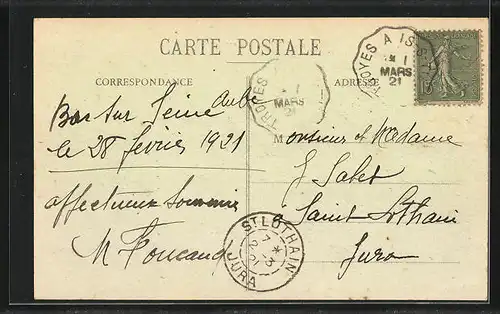 CARTE POSTALE
CORRESPONDANCE
ADRESSE
TROYES A IS
1
MARS
21
TROYES
1
MARS
21
Bar sur Seine Aube
le 28 février 1921
affectueux Souvenir
M
Monsieur et Madame
J
Saint Lothain
Jura
ST LOTHAIN
7 * 3
21
JURA